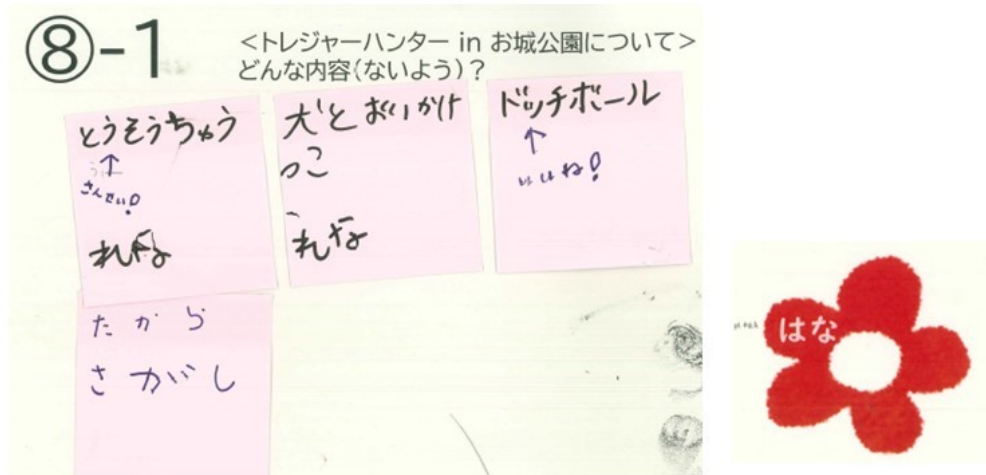 ⑧-1
<トレジャーハンター in お城公園について>
どんな内容(ないよう)?
とうそうちゅう
↑
さんせい!
れな
犬とおいかけ
っこ
れな
ドッチボール
↑
いいね!
たから
さがし
はな